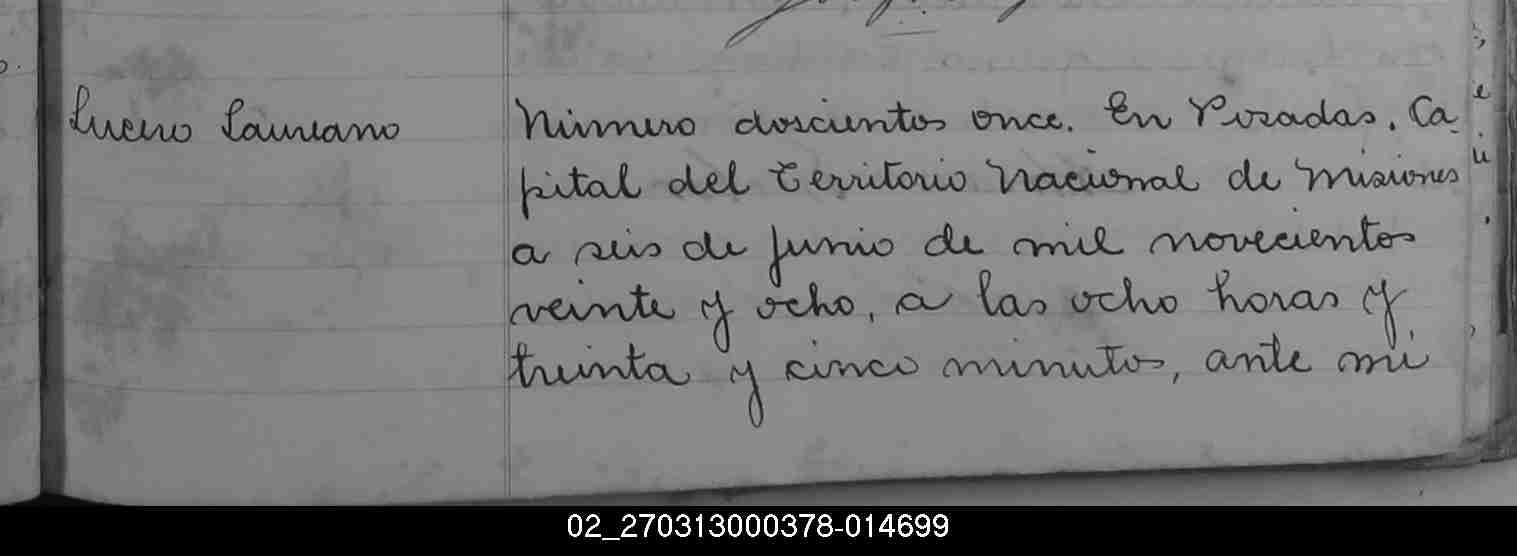 Lucero Laureano
Número doscientos once. En Posadas, Ca-
pital del Territorio Nacional de Misiones
a seis de Junio de mil novecientos
veinte y ocho, a las ocho horas y
treinta y cinco minutos, ante mí
02_270313000378-014699